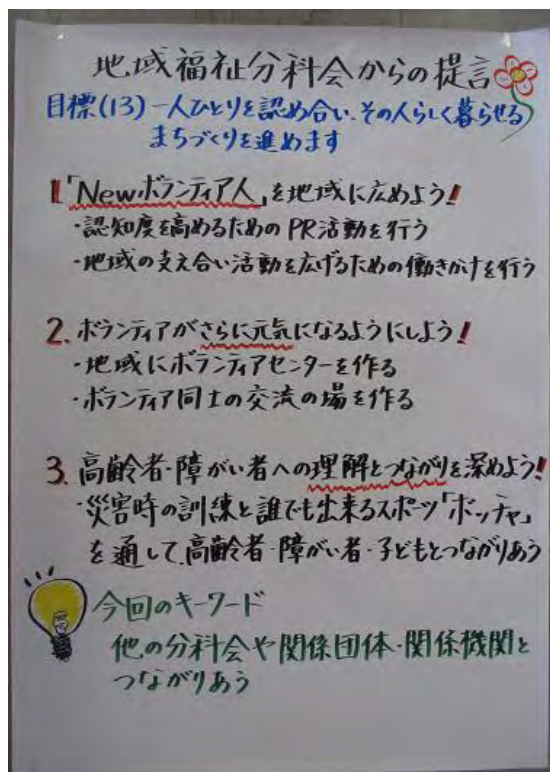 地域福祉分科会からの提言
目標(13)一人ひとりを認め合い、その人らしく暮らせる
まちづくりを進めます
1「Newボランティア人」を地域に広めよう!
・認知度を高めるためのPR活動を行う
・地域の支え合い活動を広げるための働きかけを行う
2.ボランティアがさらに元気になるようにしよう!
・地域にボランティアセンターを作る
・ボランティア同士の交流の場を作る
3.高齢者・障がい者への理解とつながりを深めよう!
・災害時の訓練と誰でも出来るスポーツ「ボッチャ」
を通して、高齢者・障がい者・子どもとつながりあう
今回のキーワード
他の分科会や関係団体・関係機関と
つながりあう